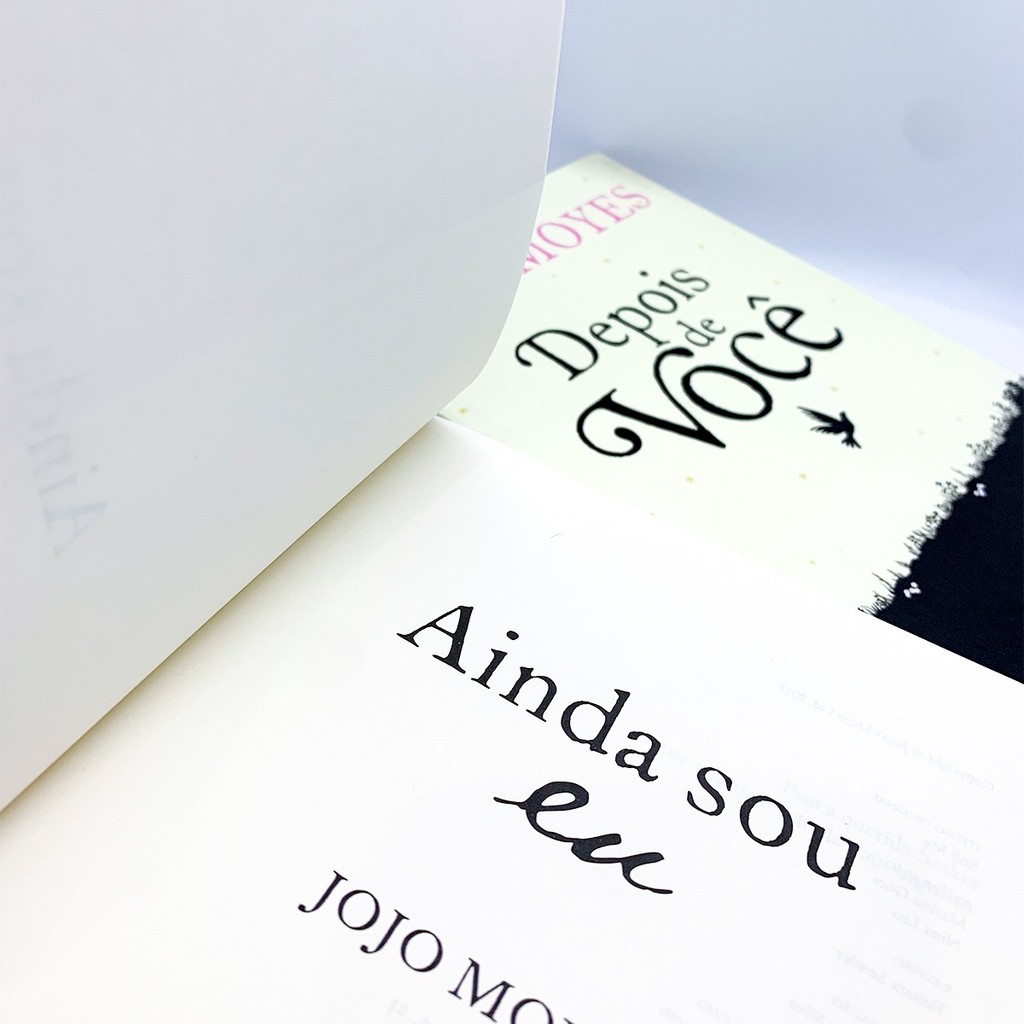 MOYES
Depois
de
Você
Ainda sou
eu
JOJO MO